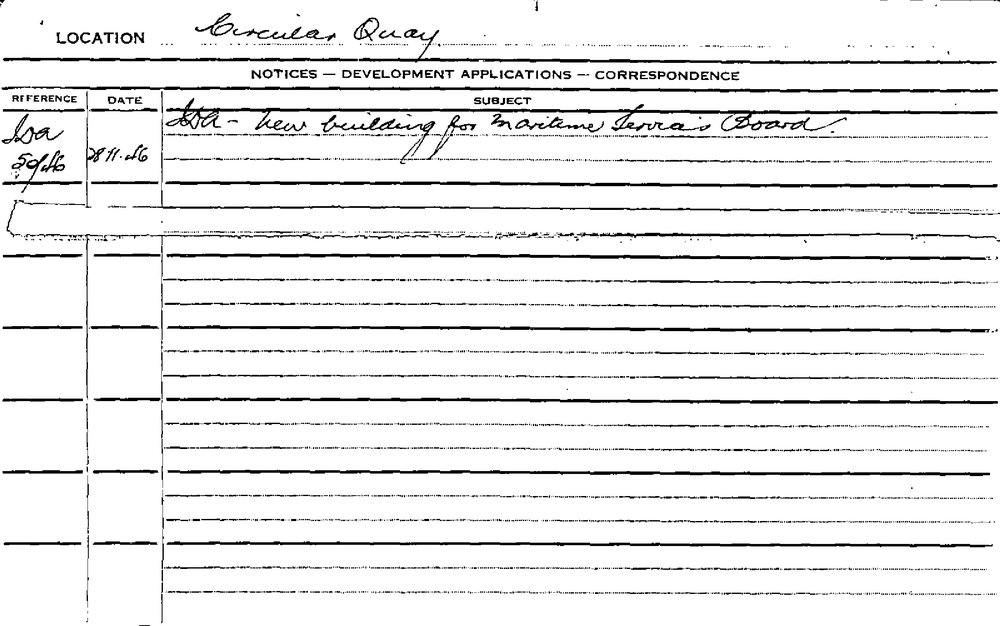 LOCATION Circular Quay
NOTICES — DEVELOPMENT APPLICATIONS — CORRESPONDENCE
REFERENCE DATE SUBJECT
Ida - New building for Maritime Services Board.
Ida
50/46 28.11.46